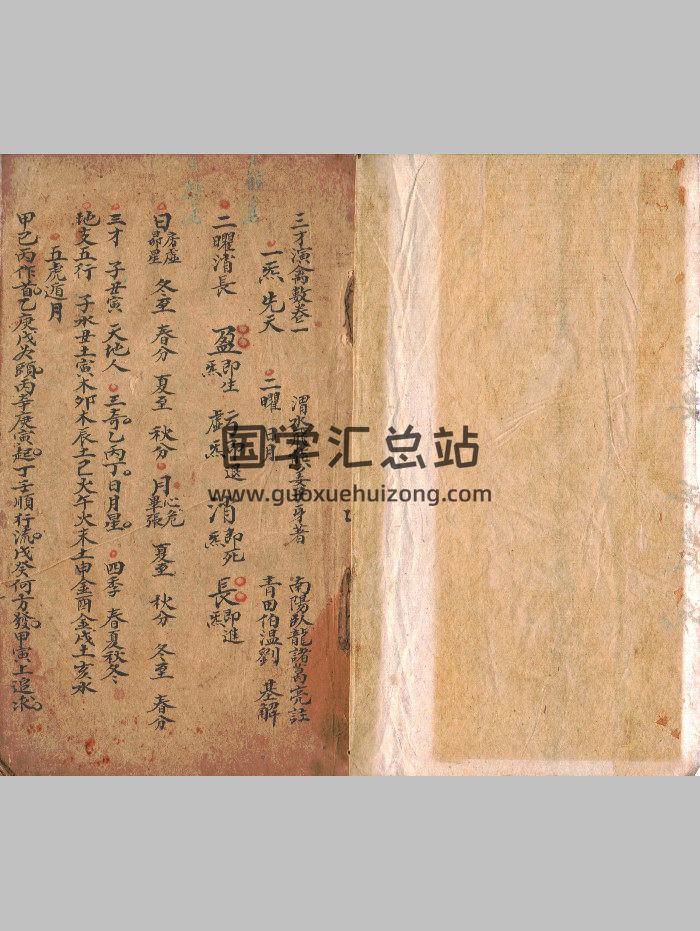 三才演禽數卷一 渭水 姜 牙著 南陽臥龍諸葛亮註
一炁先天 二曜日月 青田伯溫劉基解
二曜消長 盈即生炁 虛 退炁 消即死炁 長即進炁
日房虛昴星 冬至 春分 夏至 秋分 月心危畢張 夏至 秋分 冬至 春分
三才 子丑寅 天地人 三奇乙丙丁日月星 四季 春夏秋冬
地支五行 子水丑土寅木卯木辰土巳火午火未土申金酉金戌土亥水
五虎遁月
甲己丙作首乙庚戊為頭丙辛庚寅起丁壬順行流戊癸何方發甲寅上追求
国学汇总站
www.guoxuehuizong.com